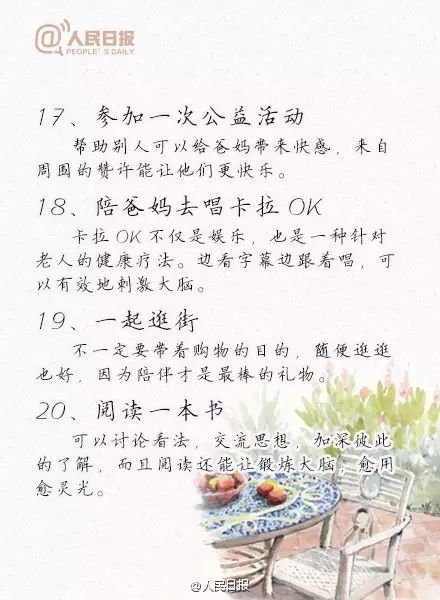 @人民日报
PEOPLE'S DAILY
17、参加一次公益活动
帮助别人可以给爸妈带来快感，来自
周围的赞许能让他们更快乐。
18、陪爸妈去唱卡拉OK
卡拉OK不仅是娱乐，也是一种针对
老人的健康疗法。边看字幕边跟着唱，可
以有效地刺激大脑。
19、一起逛街
不一定要带着购物的目的，随便逛逛
也好，因为陪伴才是最棒的礼物。
20、阅读一本书
可以讨论看法，交流思想，加深彼此
的了解，而且阅读还能让锻炼大脑，愈用
愈灵光。
@人民日报